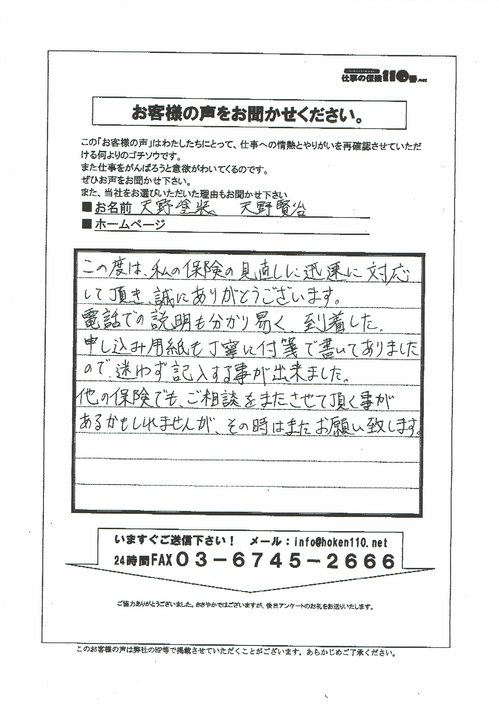 仕事の保険110番.net
お客様の声をお聞かせください。
この「お客様の声」はわたしたちにとって、仕事への情熱とやりがいを再確認させていただ
ける何よりのゴチソウです。
また仕事をがんばろうと意欲がわいてくるのです。
ぜひお声をお聞かせ下さい。
また、当社をお選びいただいた理由もお聞かせ下さい
■お名前 天野塗装 天野賢治
■ホームページ
この度は、私の保険の見直しに迅速に対応
して頂き、誠にありがとうございます。
電話での説明も分かり易く、到着した
申し込み用紙も丁寧に付箋で書いてありました
ので、迷わず記入する事が出来ました。
他の保険でも、ご相談をまたさせて頂く事が
あるかもしれませんが、その時はまたお願い致します。
いますぐご送信下さい! メール:info@hoken110.net
24時間FAX03-6745-2666
ご協力ありがとうございました。ささやかではございますが、後日アンケートのお礼をお送りいたします。
このお客様の声は弊社のHP等で掲載させていただくことがございます。あらかじめご了承ください。